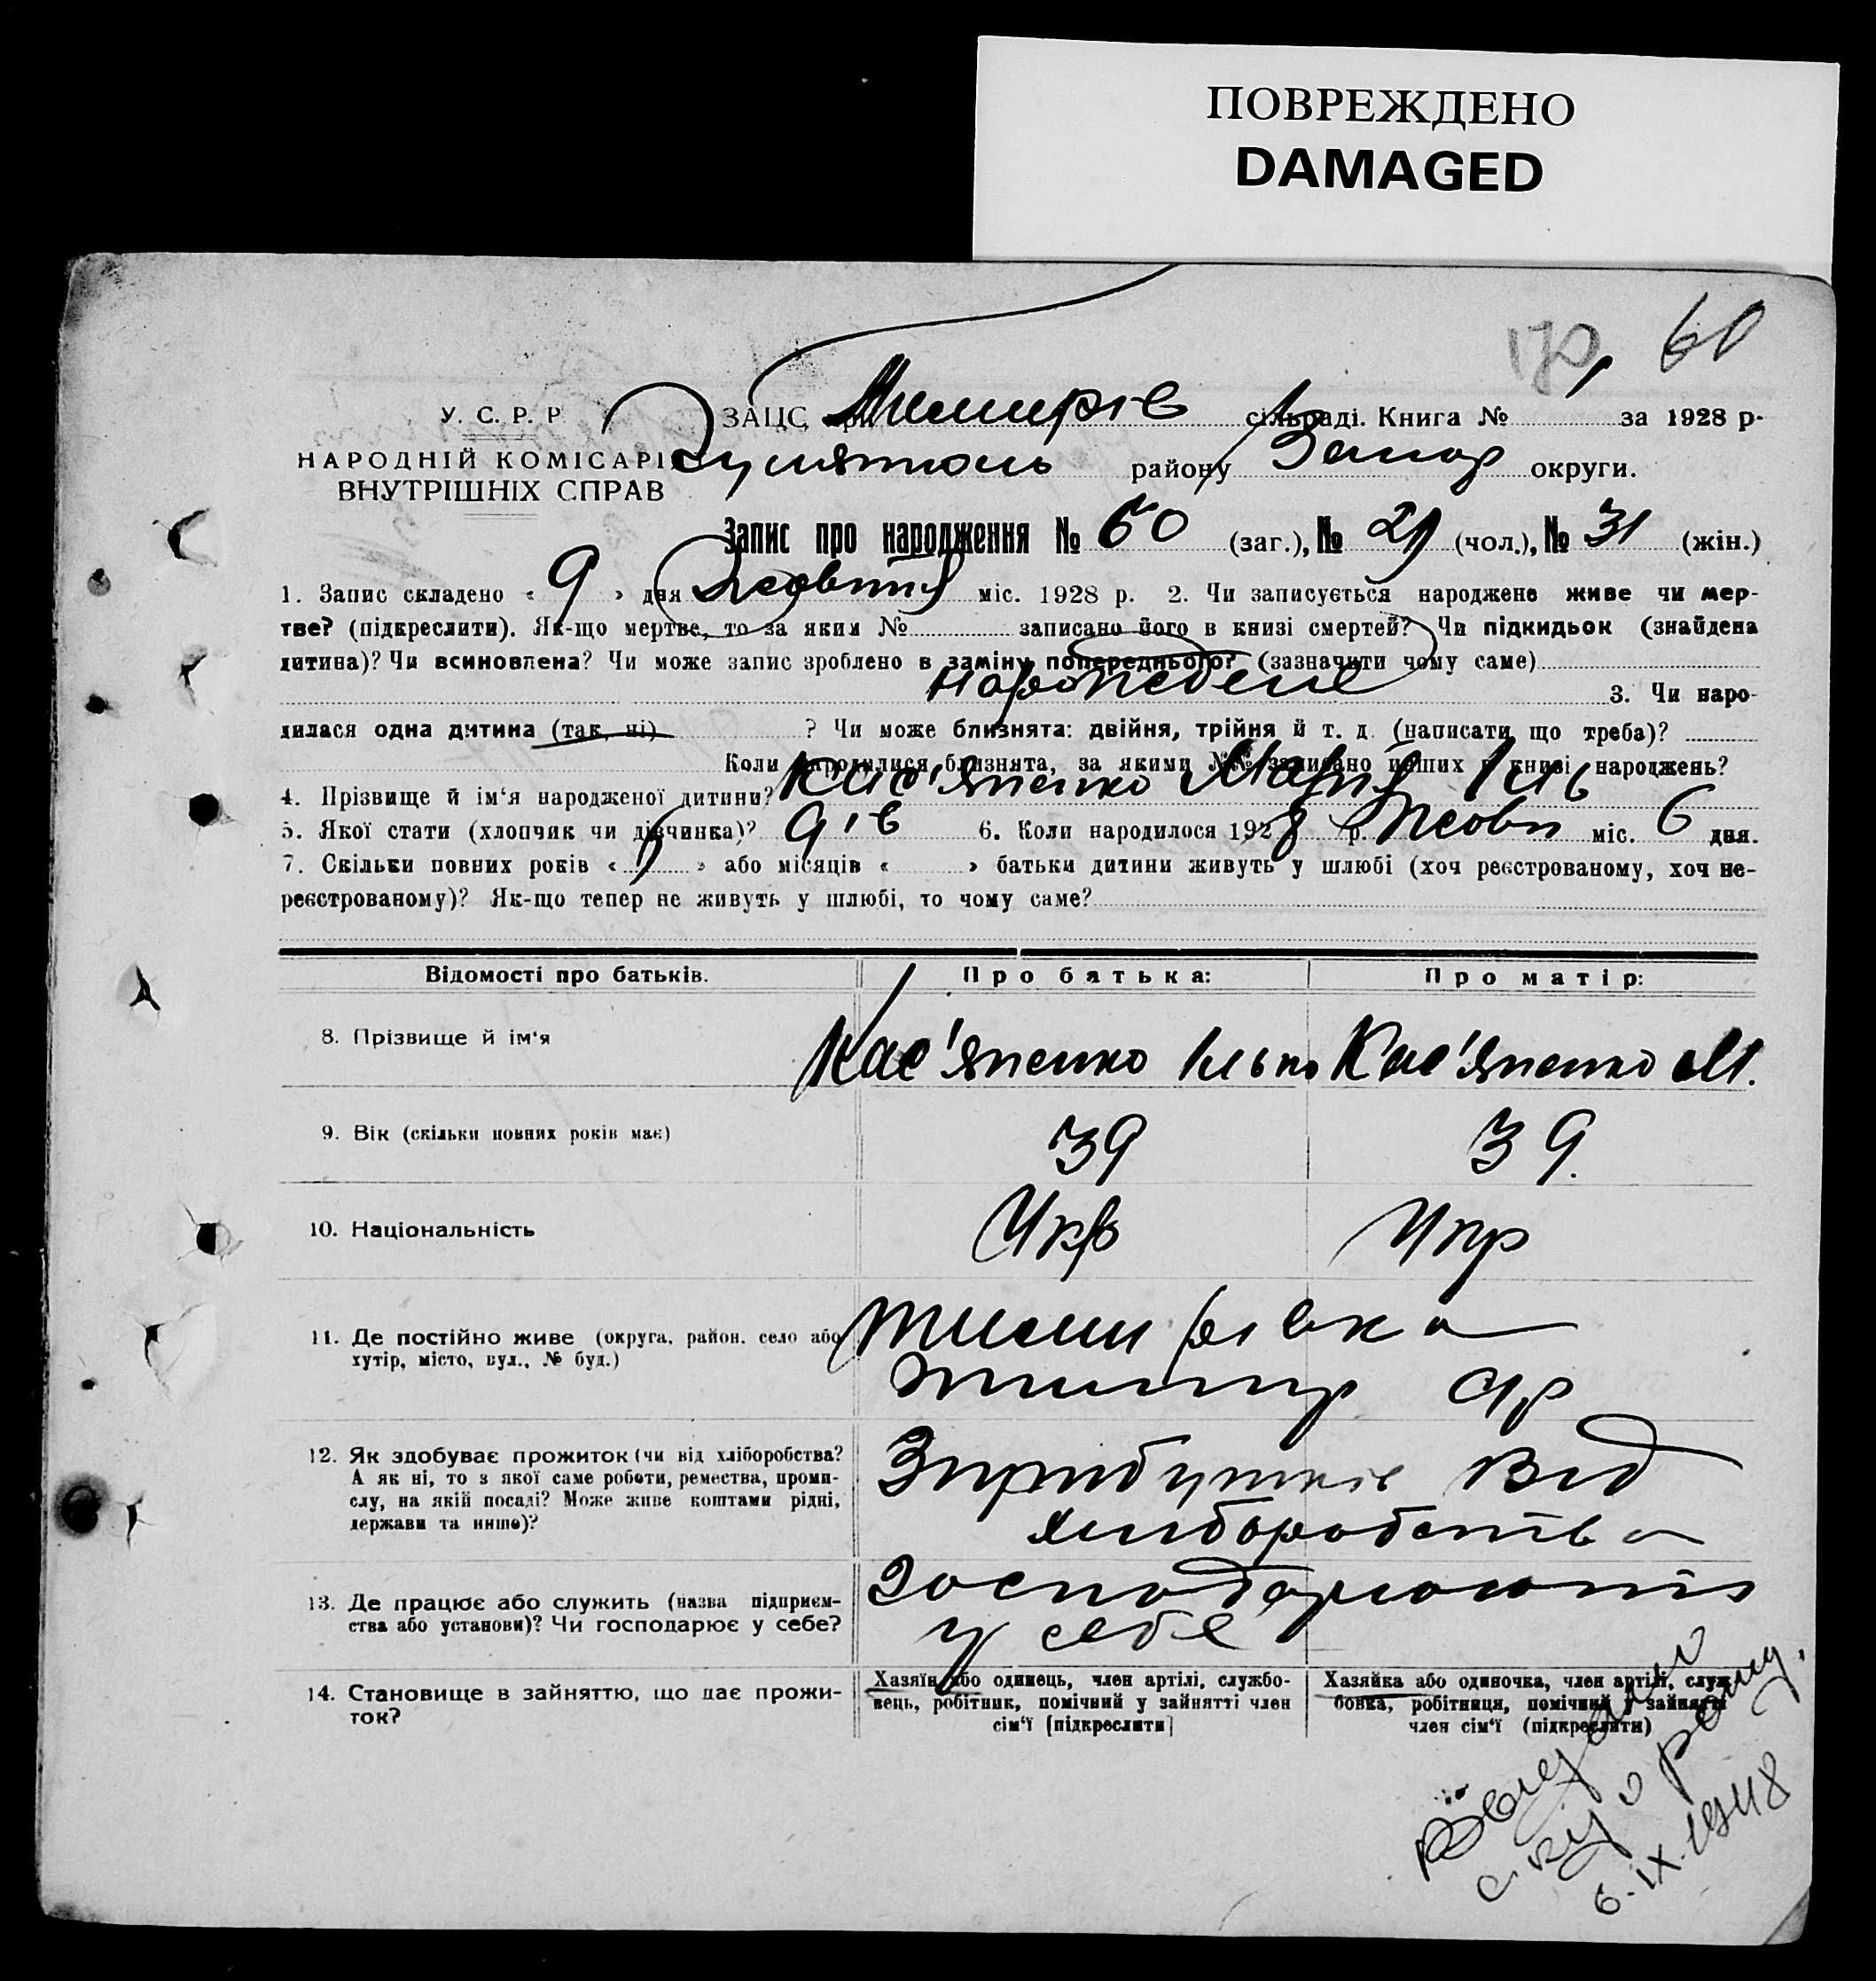 ПОВРЕЖДЕНО
DAMAGED
170 60
У. С. Р. Р. ЗАЦС при Темирів сільраді. Книга № 1 за 1928 р-
НАРОДНІЙ КОМІСАРІ Гуляйполь району Запор округи.
ВНУТРІШНІХ СПРАВ
Запис про народження № 60 (заг.), № 29 (чол.), № 31 (жін.)
1. Запис складено « 9 » дня Жовтня міс. 1928 р. 2. Чи записується народжене живе чи мер-
тве? (підкреслити). Як-що мертве, то за яким № записано його в книзі смертей? Чи підкидьок (знайдена
дитина)? Чи всиновлена? Чи може запис зроблено в заміну попереднього? (зазначити чому саме)
народжене 3. Чи наро-
дилася одна дитина (так, ні) ? Чи може близнята: двійня, трійня й т. д. (написати що треба)?
Коли народилися близнята, за якими №№ записано інших в книзі народжень?
4. Прізвище й ім‘я народженої дитини? Кас'яненко Марія Іль
5. Якої стати (хлопчик чи дівчинка)? дів 6. Коли народилося 1928 р. Жовт міс. 6 дня.
7. Скільки повних років « » або місяців « » батьки дитини живуть у шлюбі (хоч реєстрованому, хоч не-
реєстрованому)? Як-що тепер не живуть у шлюбі, то чому саме?
Відомості про батьків. Про батька: Про матір:
8. Прізвище й ім‘я Кас'яненко Ілько Кас'яненко М.
9. Вік (скільки повних років має) 39 39.
10. Національність Укр Укр
11. Де постійно живе (округа, район, село або Тимирівка
хутір, місто, вул., № буд.)
12. Як здобуває прожиток (чи від хліборобства? Зприбутків Від
А як ні, то з якої саме роботи, ремества, проми-
слу, на якій посаді? Може живе коштами рідні, хліборобства
держави та инше)?
13. Де працює або служить (назва підприєм- Господарюють
ства або установи)? Чи господарює у себе? у себе
14. Становище в зайняттю, що дає прожи- Хазяїн або одинець, член артілі, службо- Хазяйка або одиночка, член артілі, служ-
ток? вець, робітник, помічний у зайнятті член бовка, робітниця, помічний у зайнятті
сім‘ї [підкреслити] член сім‘ї (підкреслити)
6-IX-1948